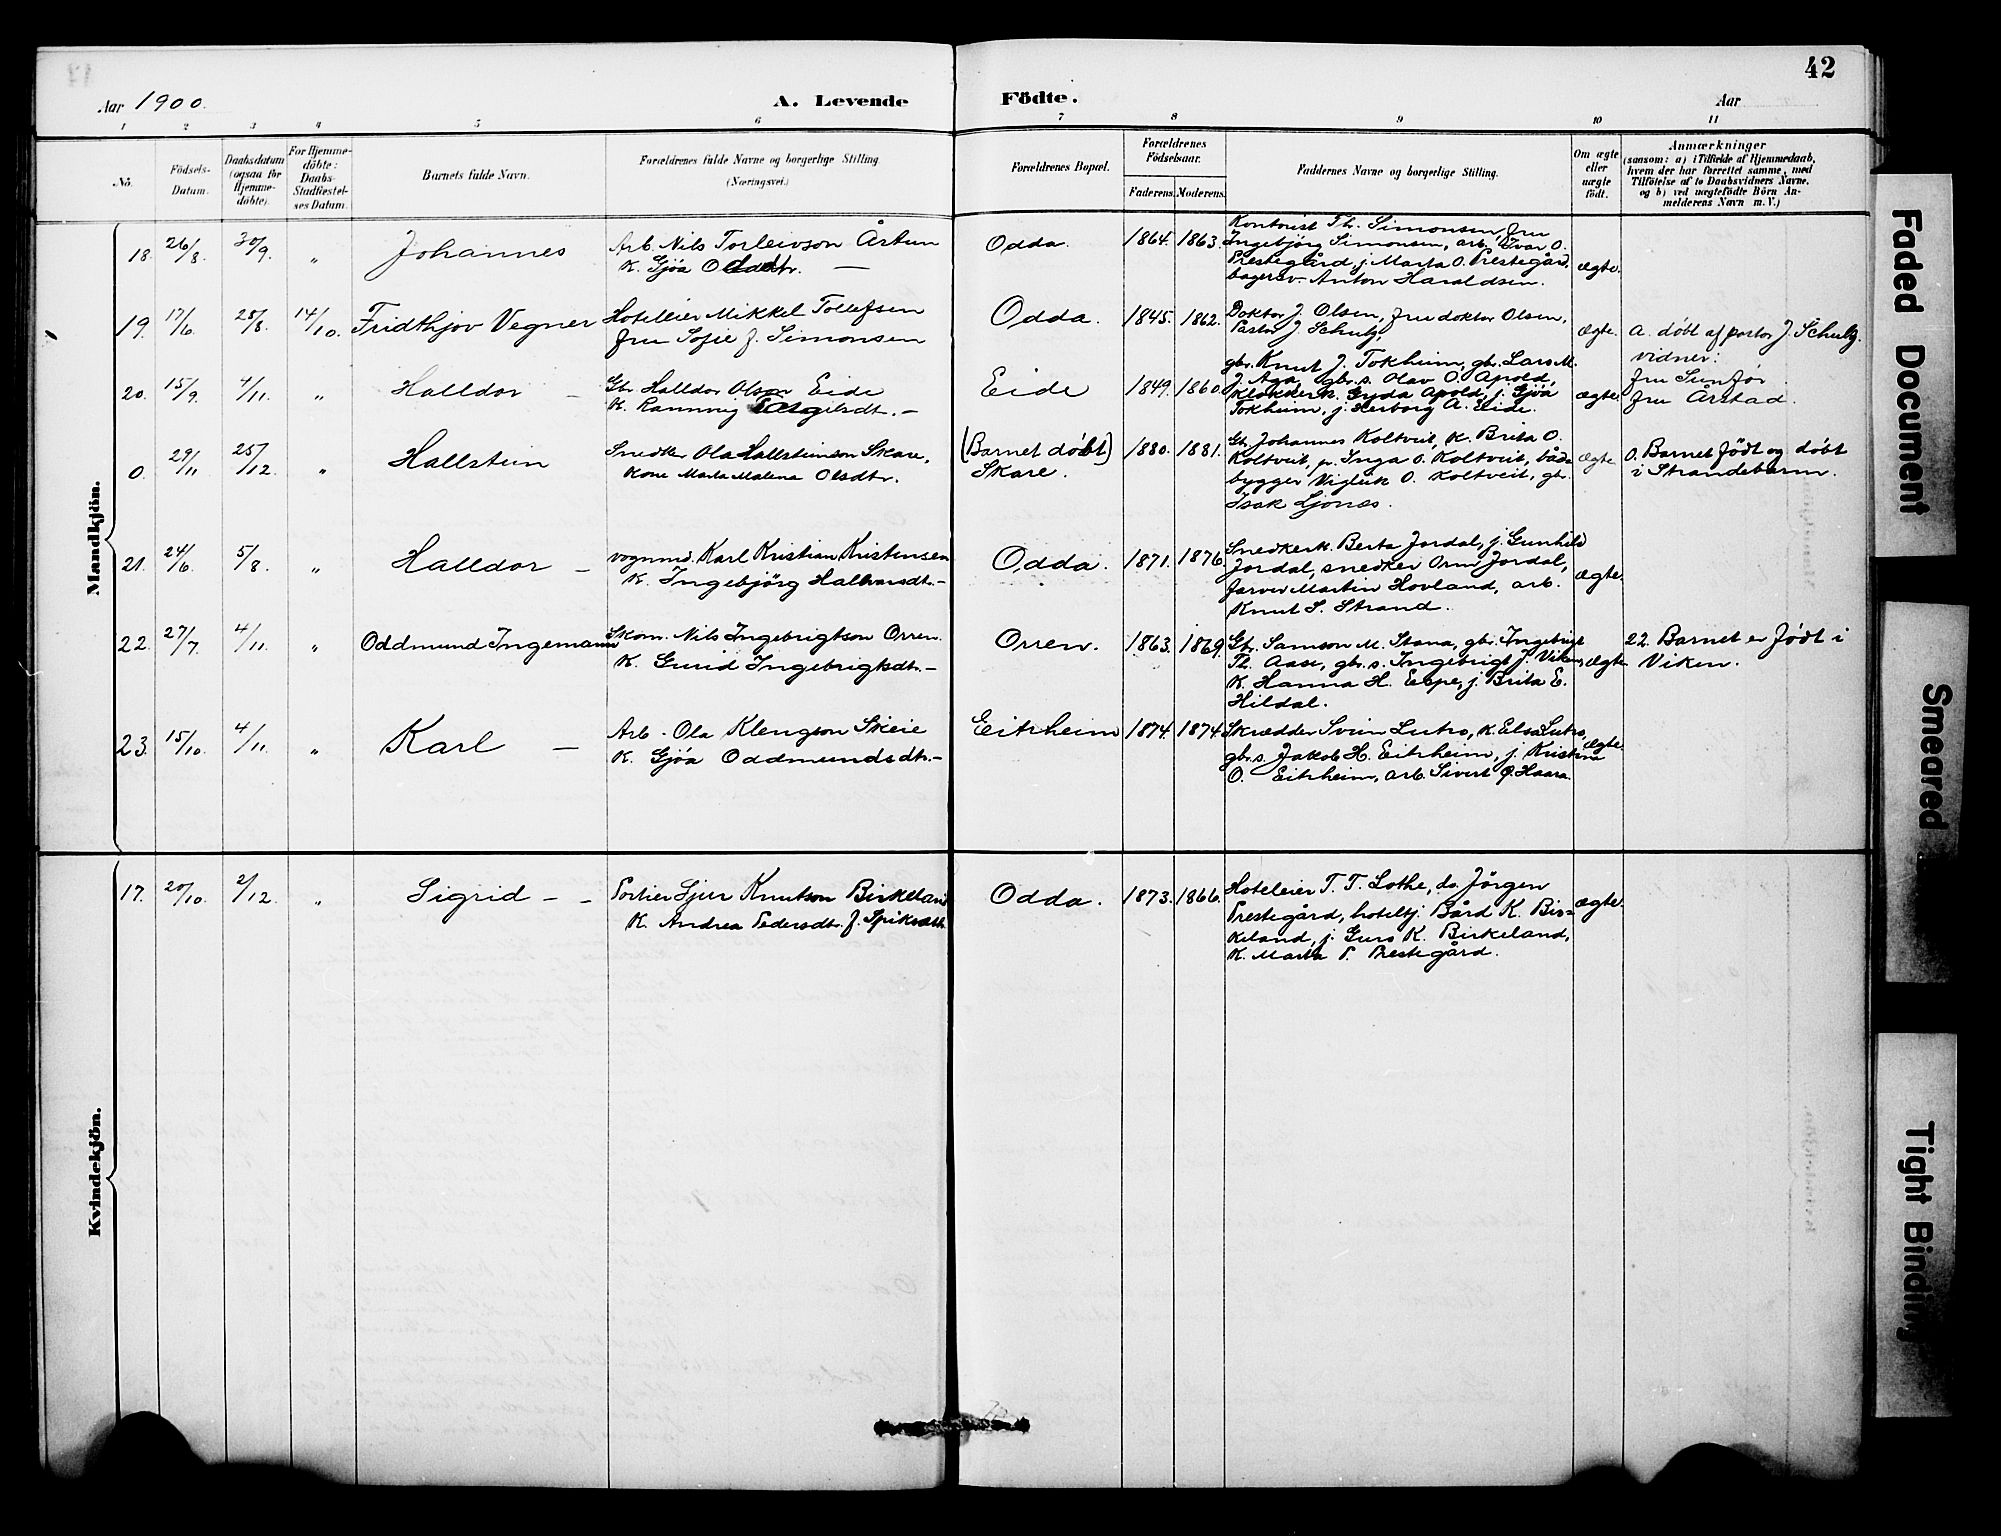 42
Aar 1900.
A. Levende Födte.
Aar
1 2 3 4 5 6 7 8 9 10 11
No.
Födsels-Datum.
Daabsdatum (ogsaa for Hjemmedöbte).
For Hjemmedöbte: Daabs-Stadfæstelses Datum.
Barnets fulde Navn.
Forældrenes fulde Navne og borgerlige Stilling. (Næringsvei.)
Forældrenes Bopæl.
Forældrenes Födselsaar.
Faderens. Moderens.
Faddernes Navne og borgerlige Stilling.
Om ægte eller uægte födt.
Anmærkninger
(saasom: a) i Tilfælde af Hjemmedaab,
hvem der har forrettet samme, med
Tilföielse af to Daabsvidners Navne,
og b) ved uægtefödte Börn An-
melderens Navn m. V.)
Mandkjön.
18. 26/8. 30/9. " Johannes
Arb. Nils Torleivson Årtun
K. Gjøa Oddsdtr. —
Odda. 1864. 1863.
Kontorist Th. Simonsen, fru
Ingebjörg Simonsen, arb. Ivar O.
Prestegård, j. Marta O. Prestegård,
bagersv. Anton Haraldsen.
ægte.
19. 17/6. 28/8. 14/10. Fridthjov Vegner
Hoteleier Mikkel Tollefsen
fru Sofie f. Simonsen
Odda. 1845. 1862.
Doktor J. Olsen, fru doktor Olsen,
Pastor J. Schulz,
ægte.
a. døbt af pastor J. Schulz.
vidner:
fru Sunfør
fru Årstad.
20. 15/9. 4/11. " Halldor —
Gbr. Halldor Olson Eide
K.
Eide 1849. 1860.
gbr. Knut J. Tokheim, gbr. Lars M.
J. Aga, gbr.s. Olav O. Apold,
Klokkerk. Gyda Apold, j. Gjøa
Tokheim, j. Herborg A. Eide.
ægte.
0. 29/11 25/12. " Hallstein
Snedker Ola Hallsteinson Skare,
Kone Marta Malena Olsdtr.
(Barnet døbt)
Skare.
1880. 1881.
Gbr. Johannes Koltveit, K. Brita O.
Koltveit, p. Inga O. Koltveit, båd-
bygger Vigleik O. Koltveit, gbr.
Isak Ljones.
ægte
0. Barnet født og døbt
i Strandebarm.
21. 24/6. 5/8. " Halldor —
vognmd. Karl Kristian Kristensen
K. Ingebjörg Hallvarsdtr. —
Odda. 1871. 1876.
Snedkerk. Berta Jordal, j. Gunhild
Jordal, snedker Orm Jordal,
farver Martin Hovland, arb.
Knut S. Strand.
ægte.
22. 27/7. 4/11. " Oddmund Ingemann
Skom. Nils Ingebrigtson Orren.
K. Gurid Ingebrigtsdtr. —
Orren. 1863. 1869.
Gbr. Samson M. Stana, gbr. Ingebrigt
Th. Aase, gbr.s. Ingebrigt J. Viken,
K. Hanna H. Espe, j. Brita E.
Hildal.
ægte
22. Barnet er født i
Viken.
23. 15/10. 4/11. " Karl —
Arb. Ola Klengson Skeie
K. Gjøa Oddmundsdtr. —
Eitrheim 1874. 1874.
Skrædder Svein Lutro, K. Elsa Lutro,
gbr.s. Jakob H. Eitrheim, j. Kristina
O. Eitrheim, arb. Sivert Haara.
ægte.
Kvindekjön.
17. 20/10. 2/12. " Sigrid — —
Portier Sjur Knutson Birkeland
K. Andrea Pedersdtr. f.
Odda. 1873. 1866.
Hoteleier T. T. Lothe, do. Jörgen
Prestegård, hoteltj. Bård K. Bir-
keland, j. Guro K. Birkeland,
K. Marta P. Prestegård.
ægte.
Faded Document
Smeared
Tight Binding